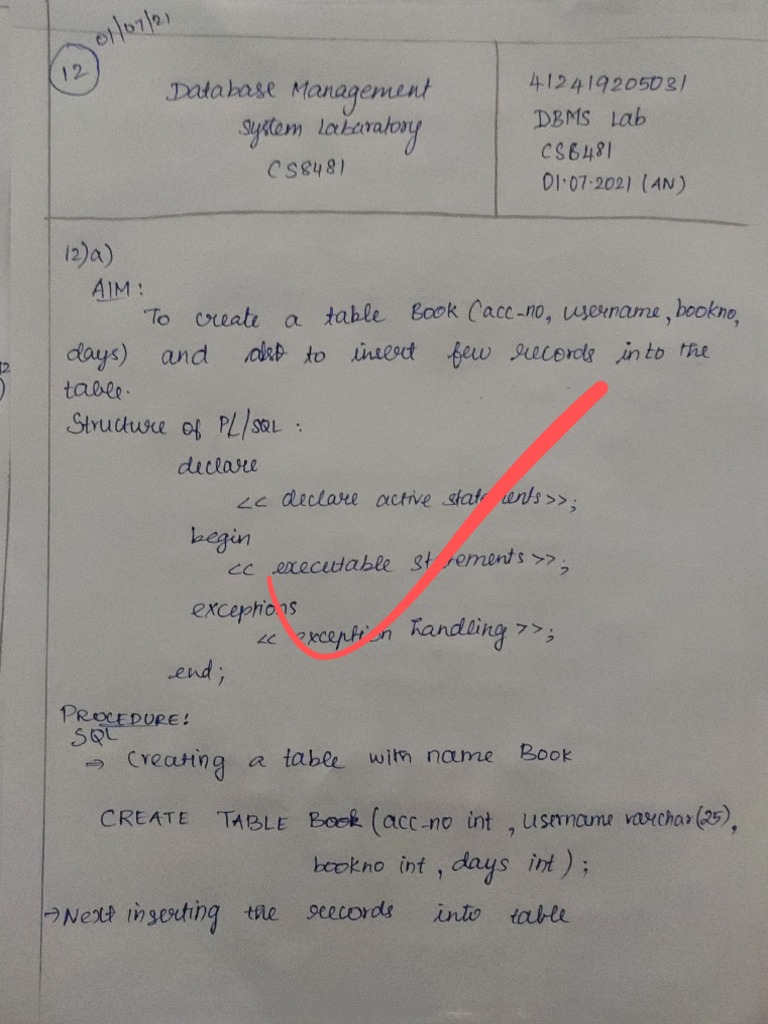 01/07/21
12
Database Management
System Labaratory
CS8481
412419205031
DBMS Lab
CS8481
01.07.2021 (AN)
12)a)
AIM:
To create a table Book (acc-no, username, bookno,
days) and also to insert few records into the
table.
Structure of PL/SQL :
declare
<< declare active statements>>;
begin
<< executable statements>>;
exceptions
<< exception handling >>;
end;
PROCEDURE:
SQL
⇒ Creating a table with name Book
CREATE TABLE Book (acc-no int, username varchar(25),
bookno int, days int);
→ Next inserting the records into table